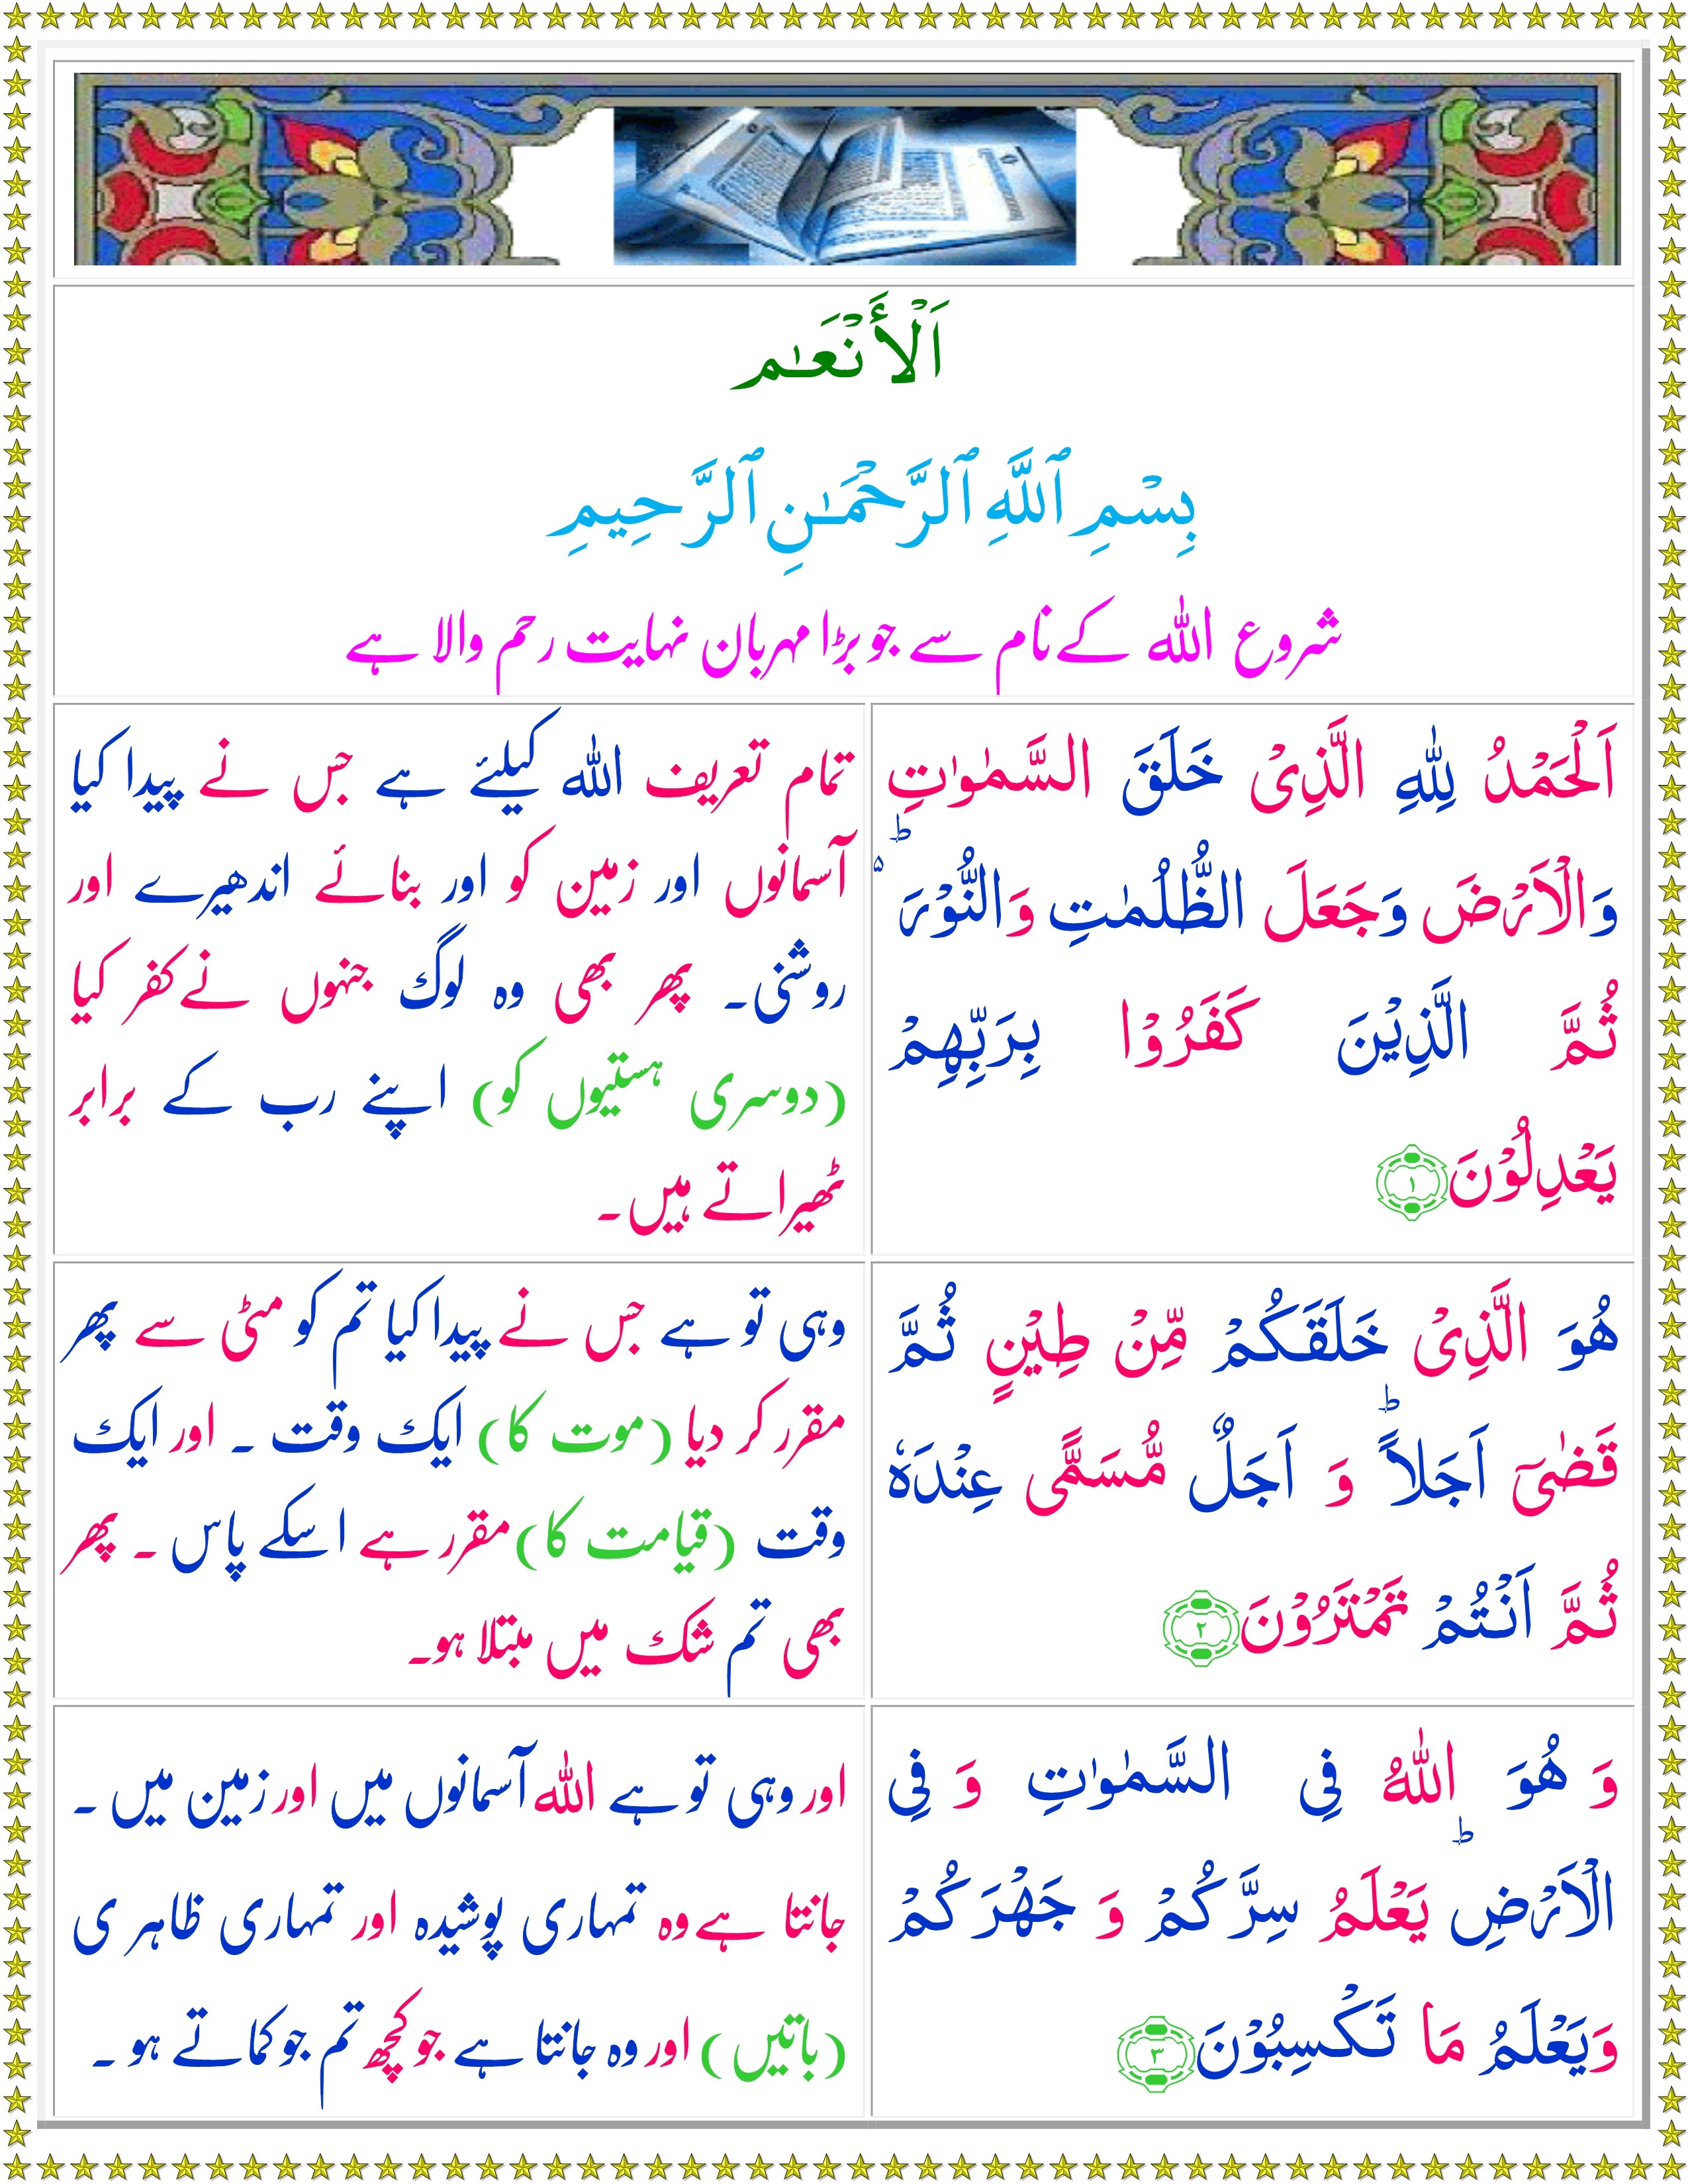 اَلْأَنْعَـٰم
بِسْمِ ٱللَّهِ ٱلرَّحْمَـٰنِ ٱلرَّحِيمِ
شروع اللہ کے نام سے جو بڑا مہربان نہایت رحم والا ہے
اَلْحَمْدُ لِلّٰهِ الَّذِىْ خَلَقَ السَّمٰوٰتِ
وَالْاَرْضَ وَجَعَلَ الظُّلُمٰتِ وَالنُّوْرَ ؕ۬
ثُمَّ الَّذِيْنَ كَفَرُوْا بِرَبِّهِمْ
يَعْدِلُوْنَ ﴿۱﴾
تمام تعریف اللہ کیلئے ہے جس نے پیدا کیا
آسمانوں اور زمین کو اور بنائے اندھیرے اور
روشنی۔ پھر بھی وہ لوگ جنہوں نے کفر کیا
(دوسری ہستیوں کو) اپنے رب کے برابر
ٹھیراتے ہیں۔
هُوَ الَّذِىْ خَلَقَكُمْ مِّنْ طِيْنٍ ثُمَّ
قَضٰٓى اَجَلاً ؕ وَ اَجَلٌ مُّسَمًّى عِنْدَهٗ
ثُمَّ اَنْتُمْ تَمْتَرُوْنَ ﴿۲﴾
وہی تو ہے جس نے پیدا کیا تم کو مٹی سے پھر
مقرر کر دیا (موت کا) ایک وقت ۔ اور ایک
وقت (قیامت کا) مقرر ہے اسکے پاس ۔ پھر
بھی تم شک میں مبتلا ہو۔
وَ هُوَ اللّٰهُ فِى السَّمٰوٰتِ وَ فِى
الْاَرْضِ ؕ يَعْلَمُ سِرَّكُمْ وَ جَهْرَكُمْ
وَيَعْلَمُ مَا تَكْسِبُوْنَ ﴿۳﴾
اور وہی تو ہے اللہ آسمانوں میں اور زمین میں ۔
جانتا ہے وہ تمہاری پوشیدہ اور تمہاری ظاہر ی
(باتیں) اور وہ جانتا ہے جو کچھ تم جو کماتے ہو ۔